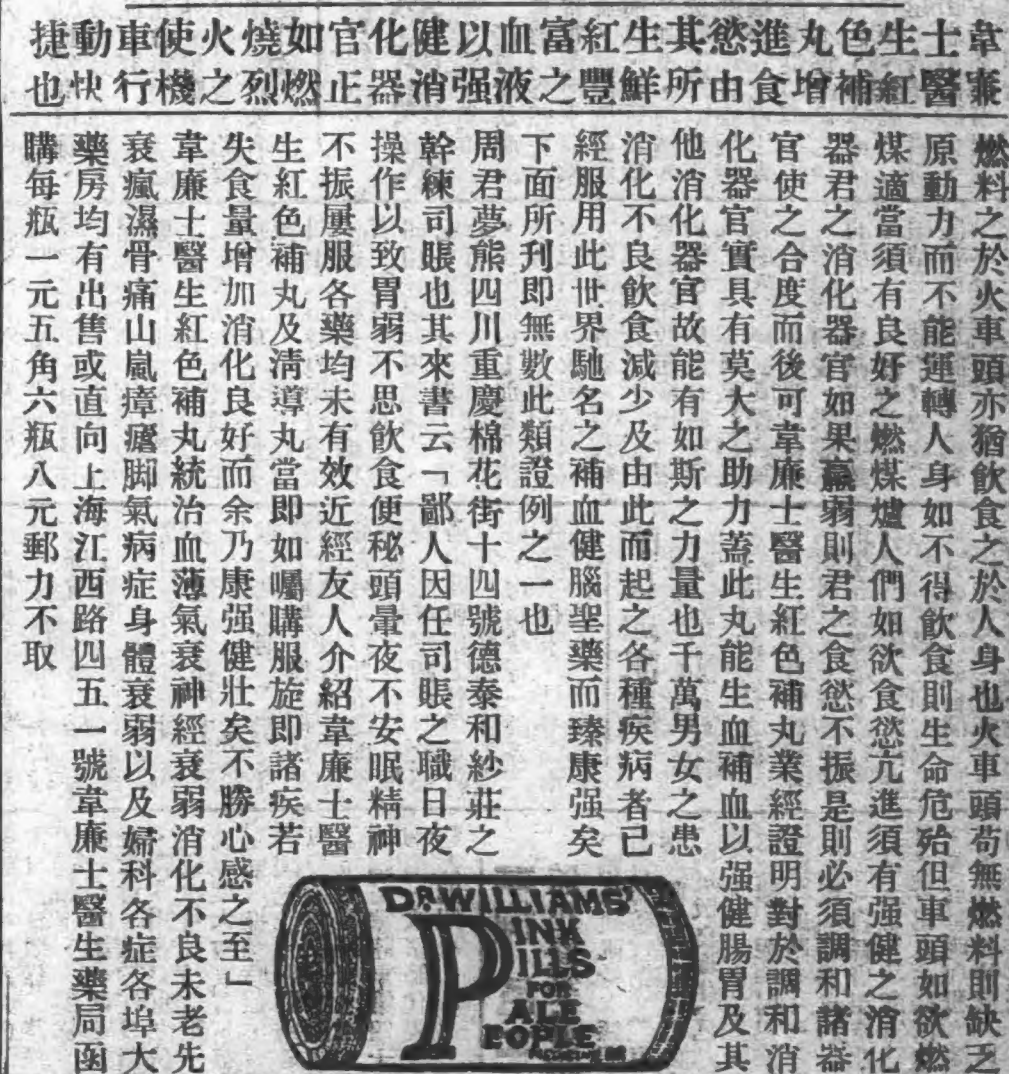 韋廉士醫生紅色補丸增進食慾由其所生鮮紅豐富之血液以强健消化器官正如燃燒烈火之使機車行動快捷也
燃料之於火車頭亦猶飲食之於人身也火車頭苟無燃料則缺乏
原動力而不能運轉人身如不得飲食則生命危殆但車頭如欲燃
煤適當須有良好之燃煤爐人們如欲食慾亢進須有强健之消化
器君之消化器官如果羸弱則君之食慾不振是則必須調和諸器
官使之合度而後可韋廉士醫生紅色補丸業經證明對於調和消
化器官實具有莫大之助力蓋此丸能生血補血以强健腸胃及其
他消化器官故能有如斯之力量也千萬男女之患
消化不良飲食減少及由此而起之各種疾病者已
經服用此世界馳名之補血健腦聖藥而臻康强矣
下面所刋即無數此類證例之一也
周君夢熊四川重慶棉花街十四號德泰和紗莊之
幹練司賬也其來書云「鄙人因任司賬之職日夜
操作以致胃弱不思飲食便秘頭暈夜不安眠精神
不振屢服各藥均未有效近經友人介紹韋廉士醫
生紅色補丸及淸導丸當即如囑購服旋即諸疾若
失食量增加消化良好而余乃康强健壯矣不勝心感之至」
韋廉士醫生紅色補丸統治血薄氣衰神經衰弱消化不良未老先
衰瘋濕骨痛山嵐瘴瘧脚氣病症身體衰弱以及婦科各症各埠大
藥房均有出售或直向上海江西路四五一號韋廉士醫生藥局函
購每瓶一元五角六瓶八元郵力不取
DR WILLIAMS'
PINK
PILLS
FOR
PALE
PEOPLE